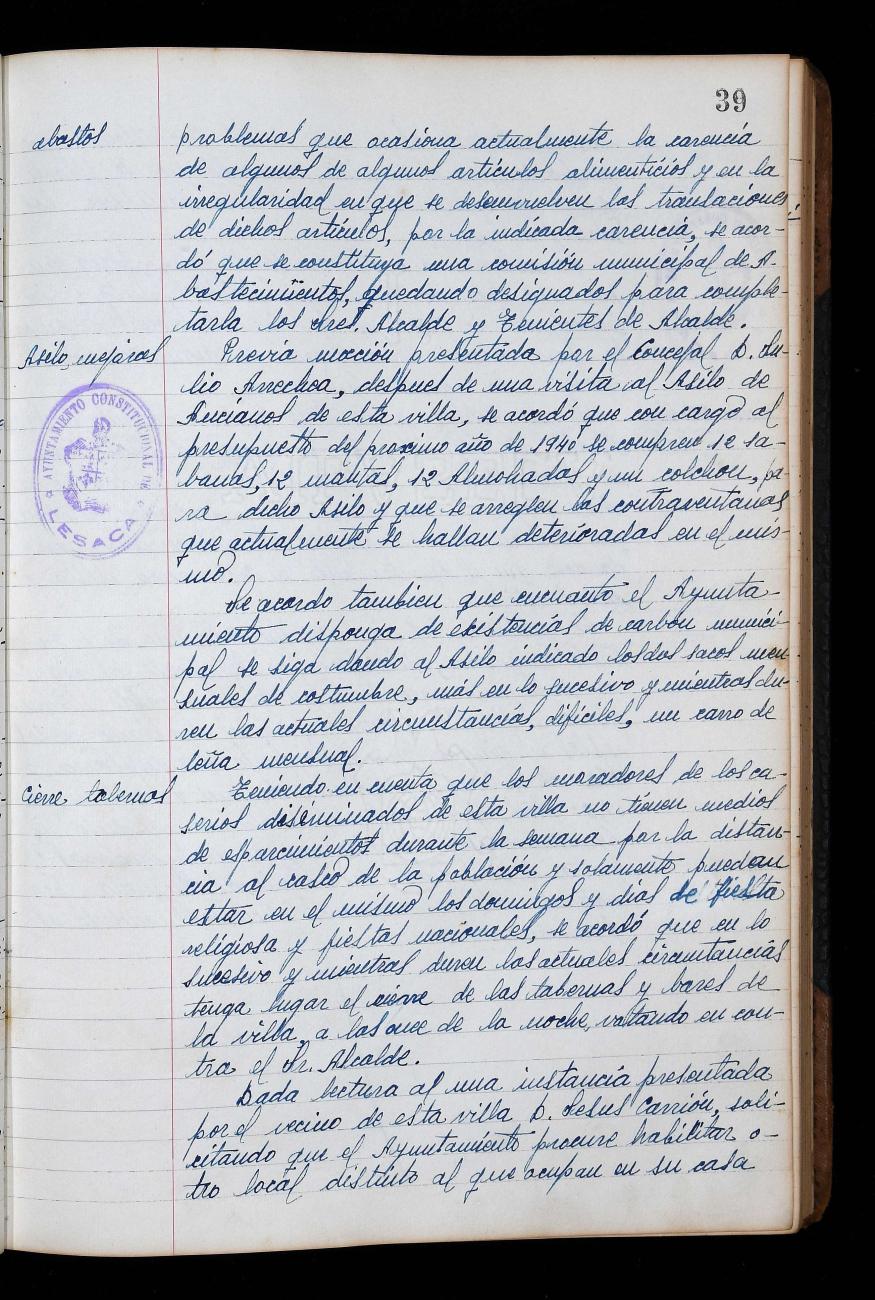 39
abastos
problemas que ocasiona actualmente la carencia
de algunos de algunos artículos alimenticios y en la
irregularidad en que se desenvuelven las translaciones
de dichos artículos, por la indicada carencia, se acor-
dó que se constituya una comisión municipal de A-
bastecimientos, quedando designados para comple-
tarla los Sres. Alcalde y Tenientes de Alcalde.
Asilo, mejoras
Previa moción presentada por el Concejal D. Ju-
lio Arrechea, despues de una visita al Asilo de
Ancianos de esta villa, se acordó que con cargo al
presupuesto del proximo año de 1940 se compren 12 sa-
banas, 12 mantas, 12 Almohadas y un colchon, pa-
ra dicho Asilo y que se arreglen las contraventanas
que actualmente se hallan deterioradas en el mis-
mo.
AYUNTAMIENTO CONSTITUCIONAL DE
LESACA
Se acordo tambien que encuanto el Ayunta-
miento disponga de existencias de carbon munici-
pal se siga dando al Asilo indicado los dos sacos men
suales de costumbre, más en lo sucesivo y mientras du-
ren las actuales circunstancias, difíciles, un carro de
leña mensual.
Cierre tabernas
Teniendo en cuenta que los moradores de los ca-
serios diseminados de esta villa no tienen medios
de esparcimientos durante la semana por la distan-
cia al casco de la población y solamente puedan
estar en el mismo los domingos y dias de fiesta
religiosa y fiestas nacionales, se acordó que en lo
sucesivo y mientras duren las actuales circuntancias
tenga lugar el cierre de las tabernas y bares de
la villa, a las once de la noche, votando en con-
tra el Sr. Alcalde.
Dada lectura al una instancia presentada
por el vecino de esta villa D. Jesus Carrión, soli-
citando que el Ayuntamiento procure habilitar o-
tro local distinto al que ocupan en su casa